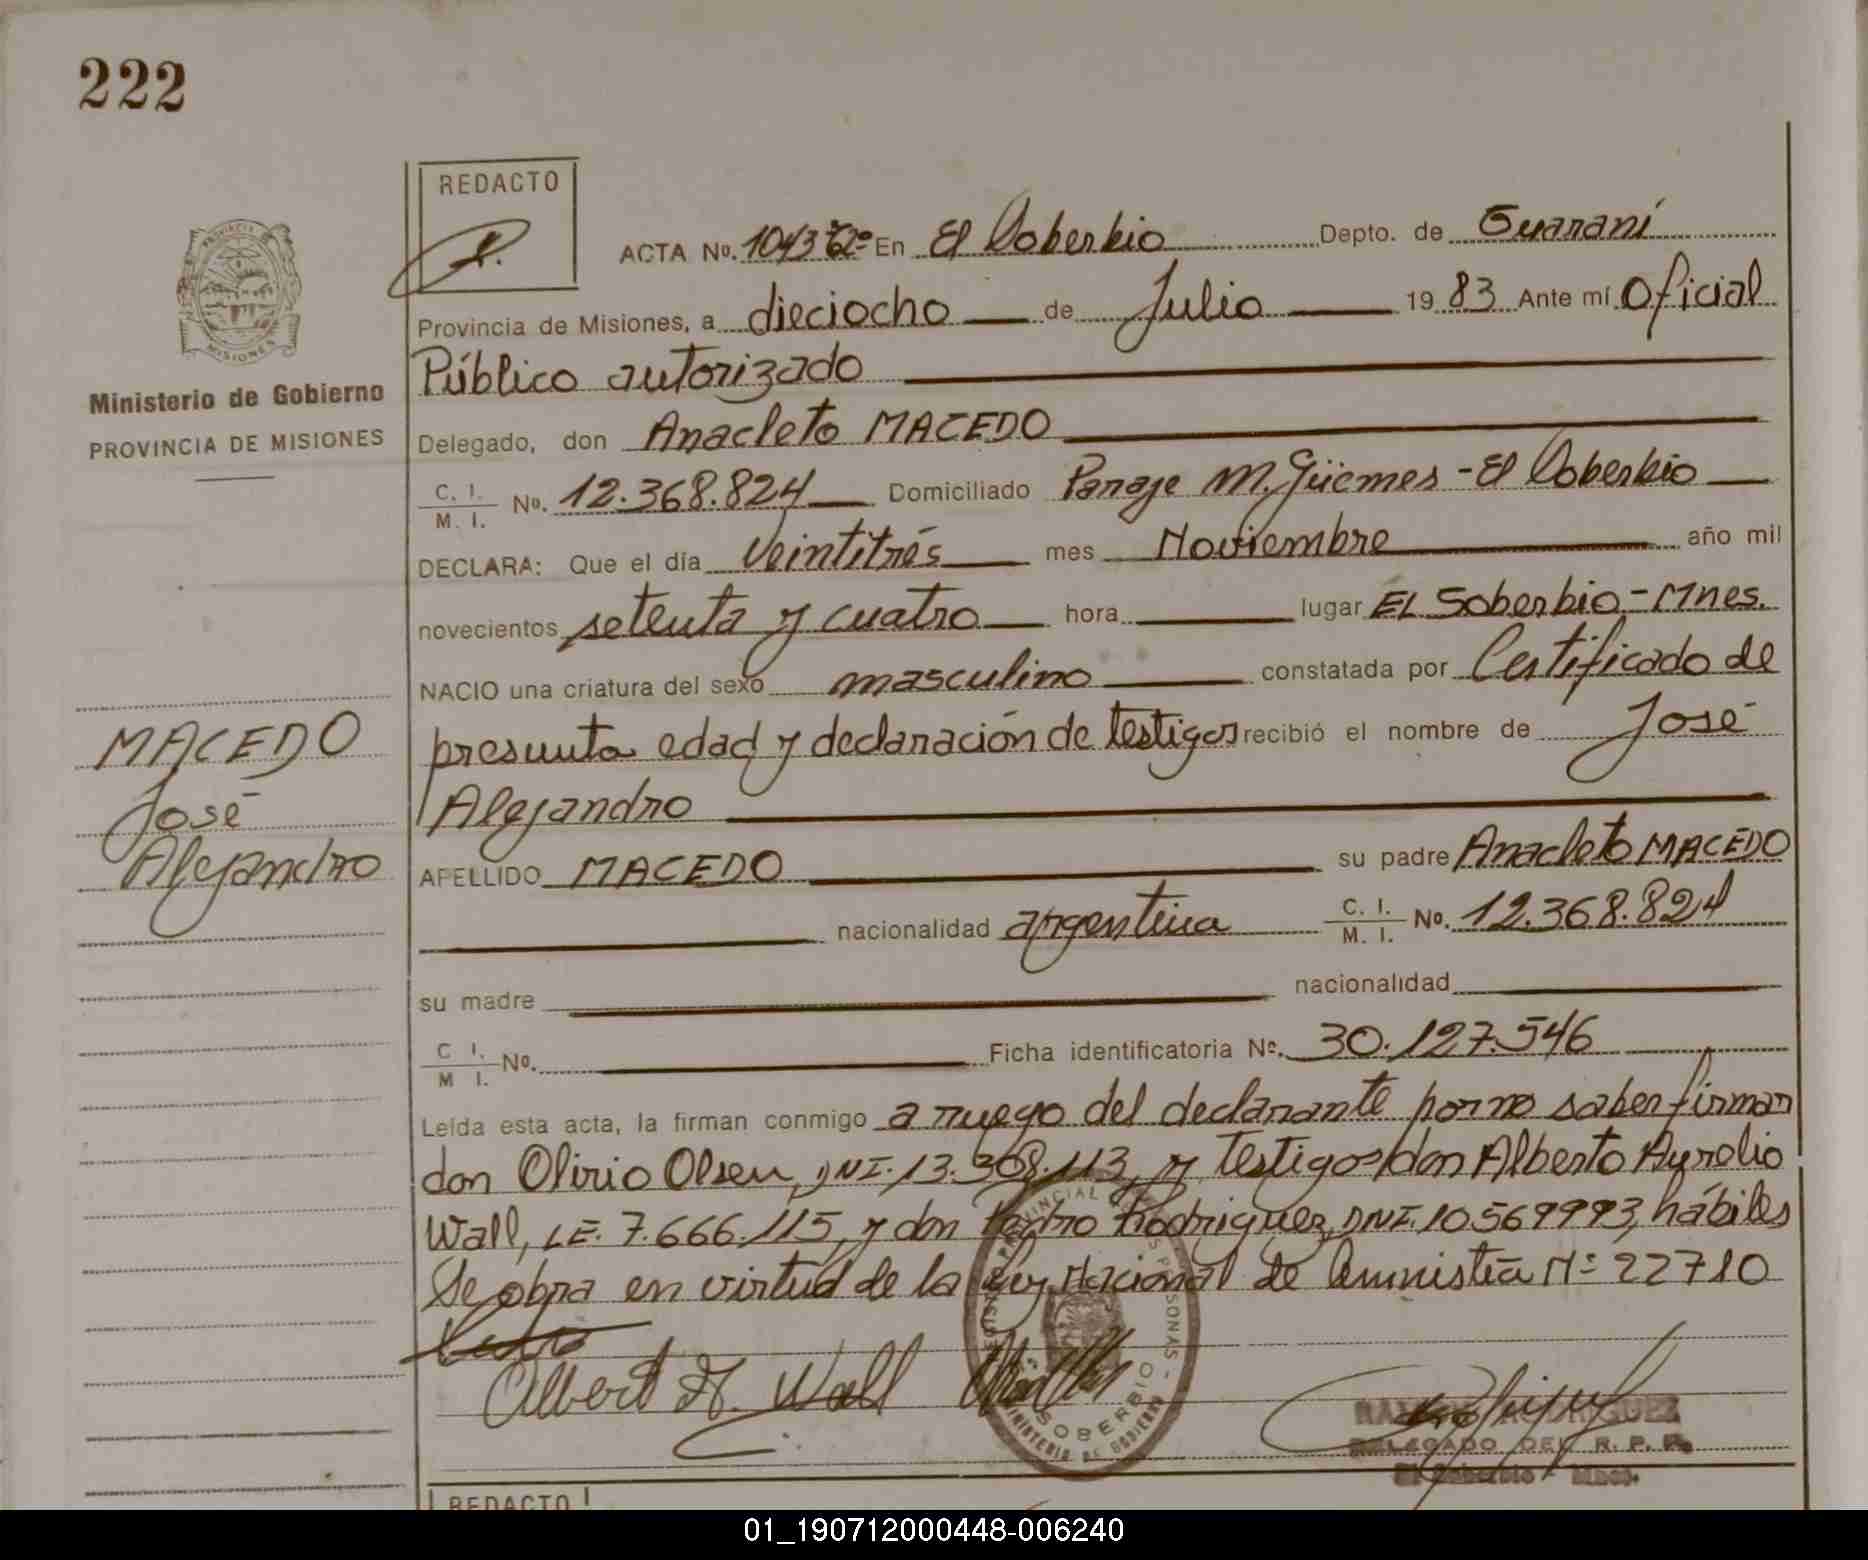 222
REDACTO
ACTA No. 1043 En El Soberbio Depto. de Guaraní
Provincia de Misiones, a dieciocho de Julio 1983 Ante mí Oficial
Público autorizado
Ministerio de Gobierno
PROVINCIA DE MISIONES
Delegado, don Anacleto MACEDO
C. I. / M. I. No. 12.368.824 Domiciliado Paraje M. Güemes - El Soberbio
DECLARA: Que el día Veintitrés mes Noviembre año mil
novecientos setenta y cuatro hora lugar EL Soberbio - Mnes.
NACIO una criatura del sexo masculino constatada por Certificado de
presunta edad y declaración de testigos recibió el nombre de José
Alejandro
MACEDO
José
Alejandro
APELLIDO MACEDO su padre Anacleto MACEDO
nacionalidad argentina C. I. / M. I. No. 12.368.824
su madre nacionalidad
C I. / M I. No. Ficha identificatoria No. 30.127.546
Leída esta acta, la firman conmigo a ruego del declarante por no saber firmar
don Olirio Olsen, DNI. 13.308.113, y testigos don Alberto Aurelio
Wall, LE. 7.666.115, y don Pedro Rodriguez, DNI. 10569993, hábiles
Se obra en virtud de la Ley Nacional de Amnistía Nº 22710
Albert A. Wall
SOBERBIO
MINISTERIO DE GOBIERNO
RODRIGUEZ
DELEGADO DEL R. P. P.
El Soberbio - Mnes.
REDACTO
01_190712000448-006240